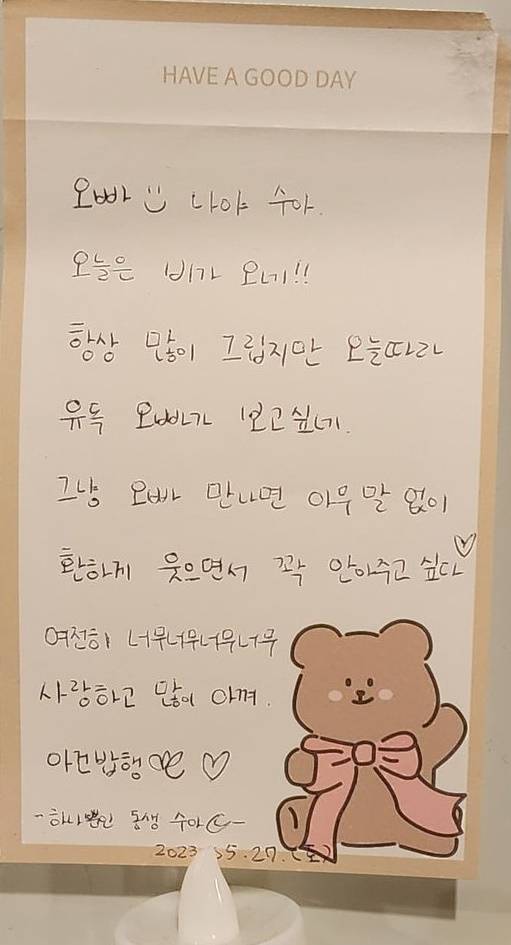 HAVE A GOOD DAY
오빠 나야 수아.
오늘은 비가 오네!!
항상 많이 그립지만 오늘따라
유독 오빠가 보고싶네.
그냥 오빠 만나면 아무 말 없이
환하게 웃으면서 꽉 안아주고 싶다
여전히 너무너무너무너무
사랑하고 많이 아껴.
아건밥행
-하나뿐인 동생 수아-
2023. 5.27.(토)